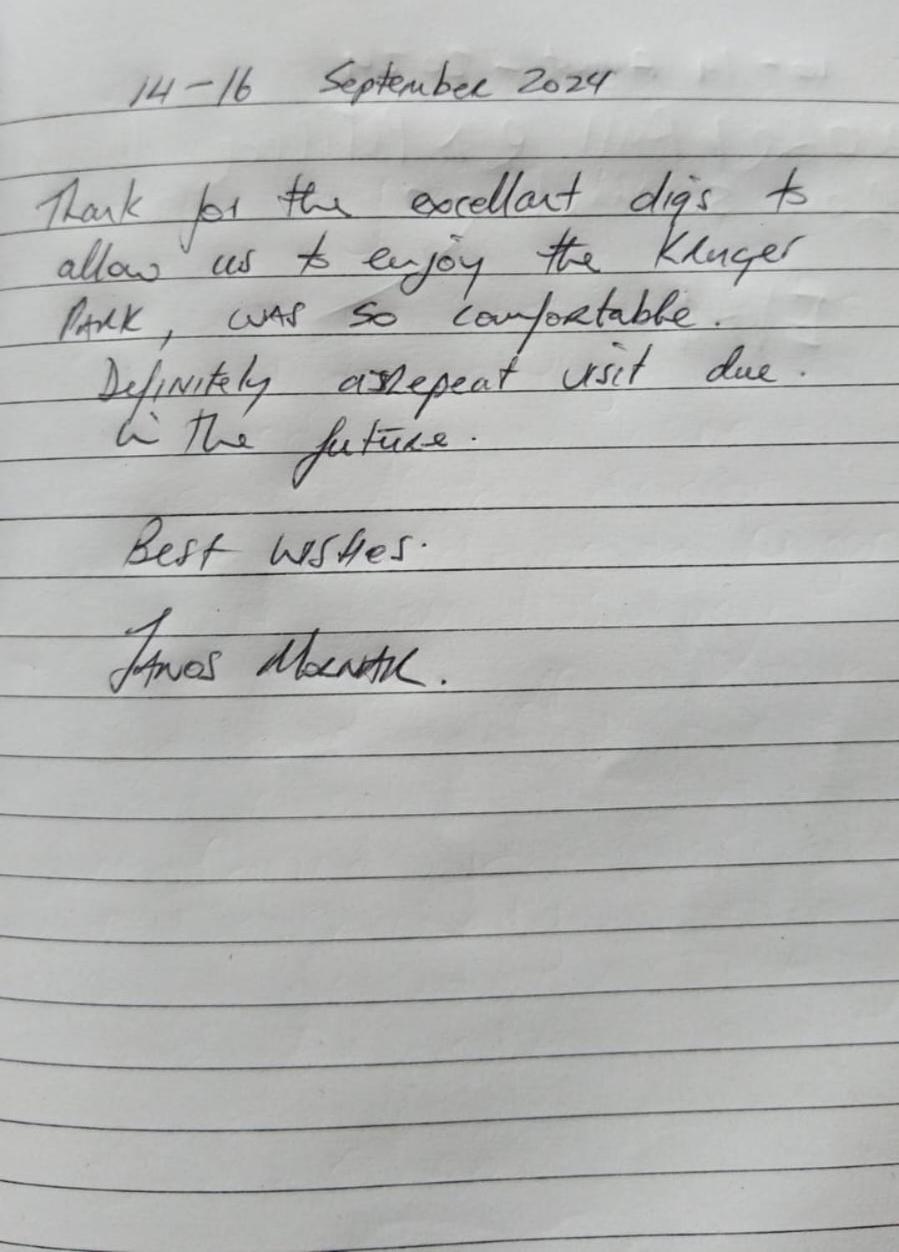 14-16 September 2024
Thank for the excellant digs to
allow us to enjoy the Kruger
PARK, WAS so comfortable.
Definitely a repeat visit due.
in the future.
Best wishes.
JANOS MOLNAR.